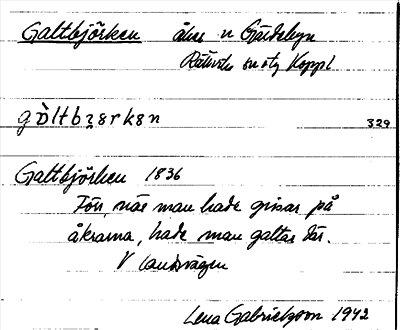 Galtbjörken åker n Gärdsbyn
Rättviks sn otg Koppl
329
Galtbjörken 1836
Förr, när man hade grisar på
åkrarna, hade man galtar där.
V landsvägen
Lena Gabrielsson 1942